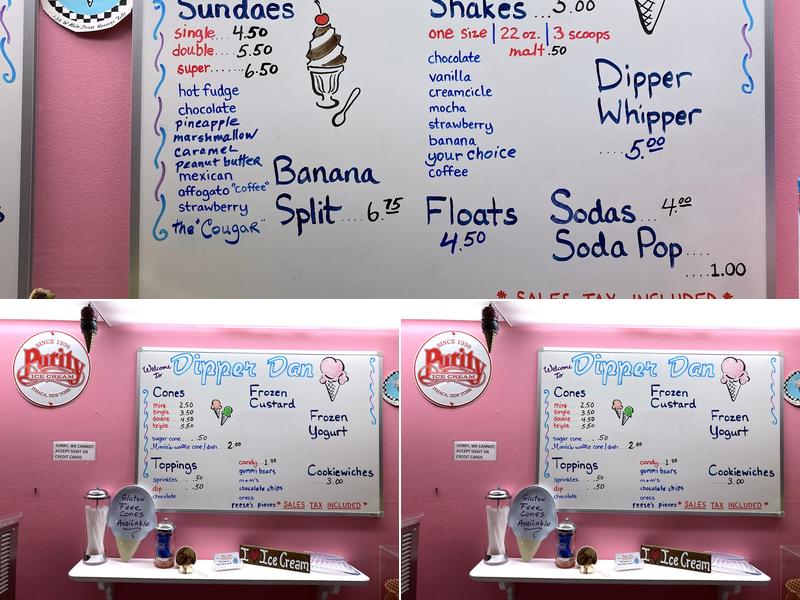 Sundaes
single.... 4.50
double.... 5.50
super....... 6.50
hot fudge
chocolate
pineapple
marshmallow
caramel
peanut butter
mexican
affogato "coffee"
strawberry
the "Cougar"
Banana
Split .... 6.75
Shakes ... 5.00
one size | 22 oz. | 3 scoops
malt .50
chocolate
vanilla
creamcicle
mocha
strawberry
banana
your choice
coffee
Dipper
Whipper
.... 5.00
Floats
4.50
Sodas ... 4.00
Soda Pop ....
.... 1.00
* SALES TAX INCLUDED *
SINCE 1936
Purity
ICE CREAM
ITHACA, NEW YORK
SORRY, WE CANNOT
ACCEPT DEBIT OR
CREDIT CARDS
Welcome
To
Dipper Dan
Cones
mini 2.50
single 3.50
double 4.50
triple 5.50
sugar cone .. .50
waffle cone/dish .. 2.00
Toppings
sprinkles ... .50
dip ... .50
chocolate
Frozen
Custard
Frozen
Yogurt
candy .. 1.00
gummi bears
m+m's
chocolate chips
oreos
reese's pieces
Cookiewiches
.... 3.00
* SALES TAX INCLUDED *
Gluten
Free
Cones
Available
I Ice Cream
SINCE 1936
Purity
ICE CREAM
ITHACA, NEW YORK
SORRY, WE CANNOT
ACCEPT DEBIT OR
CREDIT CARDS
Welcome
To
Dipper Dan
Cones
mini 2.50
single 3.50
double 4.50
triple 5.50
sugar cone .. .50
waffle cone/dish .. 2.00
Toppings
sprinkles ... .50
dip ... .50
chocolate
Frozen
Custard
Frozen
Yogurt
candy .. 1.00
gummi bears
m+m's
chocolate chips
oreos
reese's pieces
Cookiewiches
.... 3.00
* SALES TAX INCLUDED *
Gluten
Free
Cones
Available
I Ice Cream